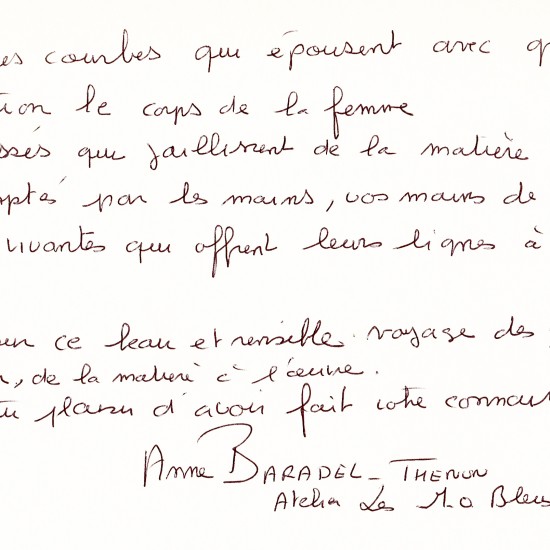 es courbes que épousent avec q
tion le corps de la femme
ssés que jaillissent de la matière
ptés par les mains, vos mains de
vivantes que offrent leurs lignes à
en ce beau et sensible voyage des
, de la matière à l'œuvre.
plaisir d'avoir fait votre connais
Anne BARADEL-THENON
Atelier Les M.O Bleus